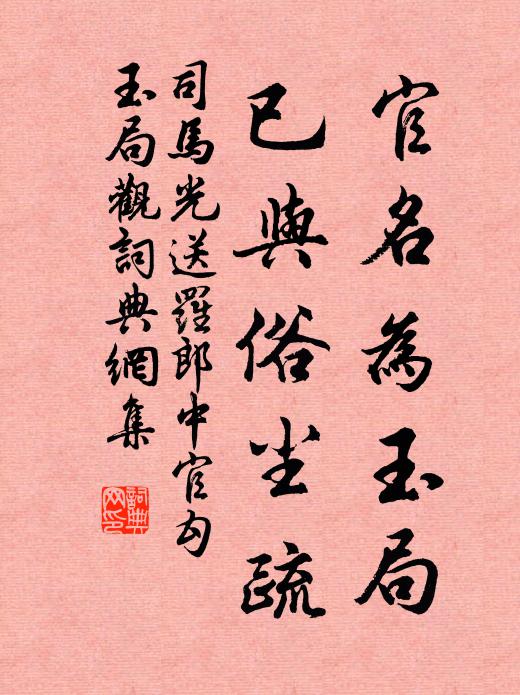 官名為玉局
已與俗尘疏
司馬光送羅郎中官勾
玉局觀詞典網集
詞典
网印